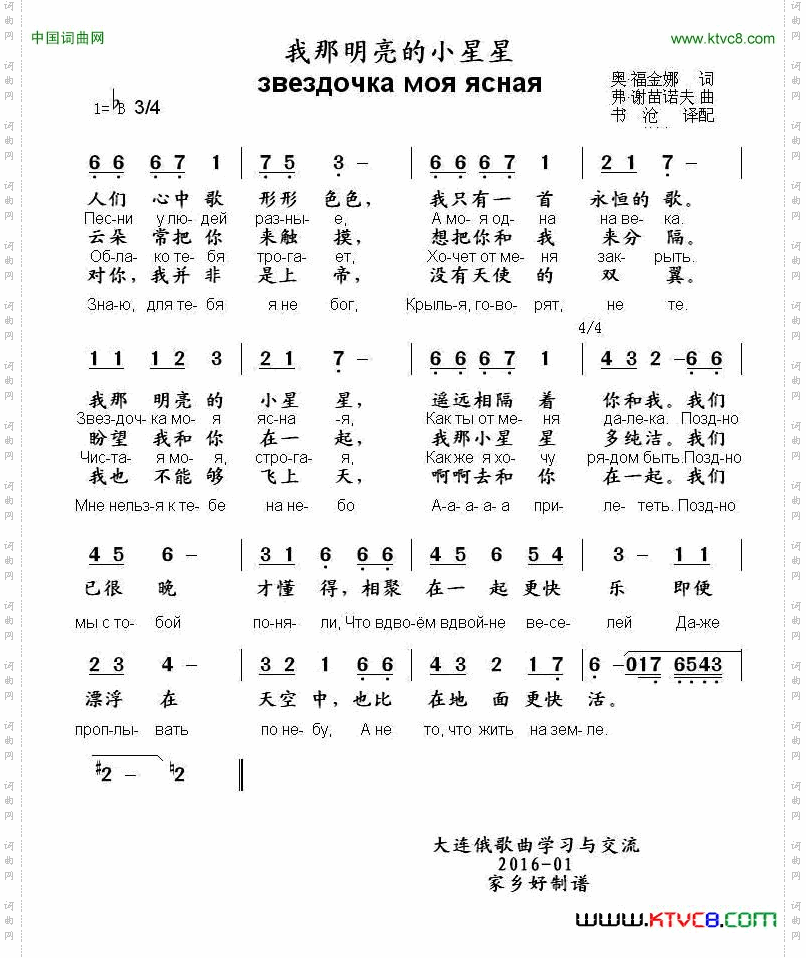 中国词曲网
www.ktvc8.com
我那明亮的小星星
звездочка моя ясная
奥·福金娜 词
弗·谢苗诺夫 曲
书 沧 译配
1=♭B 3/4
6 6 6 7 1 | 7 5 3 – | 6 6 6 7 1 | 2 1 7 – |
人们 心中 歌 形形 色色， 我只有一 首 永恒的 歌。
Пес-ни у лю-дей раз-ны- е, А мо- я од- на на ве- ка.
云朵 常把 你 来触 摸， 想把你和 我 来分 隔。
Об-ла- ко те-бя тро-га- ет, Хо-чет от ме- ня зак- рыть.
对你，我并 非 是上 帝， 没有天使 的 双 翼。
Зна-ю, для те-бя я не бог, Крыль-я, го-во- рят, не те.
4/4
1 1 1 2 3 | 2 1 7 – | 6 6 6 7 1 | 4 3 2 –6 6 |
我那 明亮 的 小星 星， 遥远相隔 着 你和我。我们
Звез-доч- ка мо- я яс-на -я, Как ты от ме- ня да-ле-ка. Позд-но
盼望 我和 你 在一 起， 我那小星 星 多纯洁。我们
Чис-та- я мо-я, стро-га-я, Как же я хо- чу ря-дом быть.Позд-но
我也 不能 够 飞上 天， 啊啊去和 你 在一起。我们
Мне нель-з-я к те- бе на не- бо А-а- а- а при- ле- теть. Позд-но
4 5 6 – | 3 1 6 6 6 | 4 5 6 5 4 | 3 – 1 1 |
已很 晚 才懂 得，相聚 在一 起更快 乐 即便
мы с то- бой по-ня- ли, Что вдво-ём вдвой-не ве-се- лей Да-же
2 3 4 – | 3 2 1 6 6 | 4 3 2 1 7 | 6 –017 6543 |
漂浮 在 天空 中，也比 在地 面更快 活。
проп-лы- вать по не- бу, А не то, что жить на зем- ле.
♯2 – ♮2
大连俄歌曲学习与交流
2016-01
家乡好制谱
www.KTVC8.com